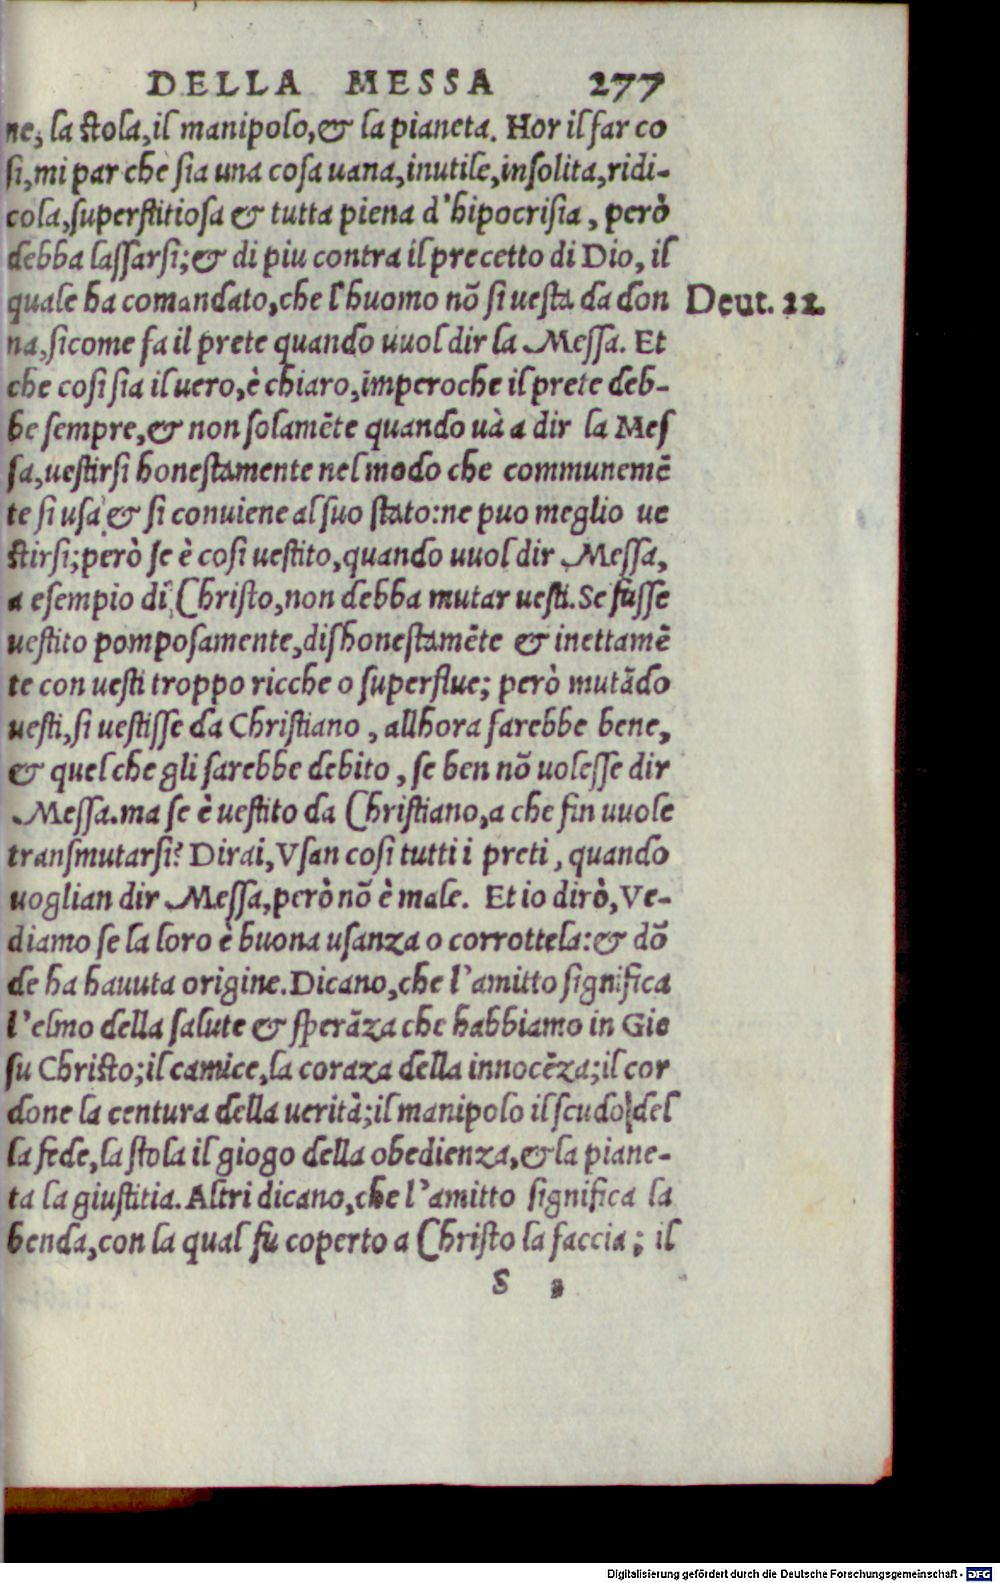 DELLA MESSA 277
ne, la stola, il manipolo, & la pianeta. Hor il far co
si, mi par che sia una cosa uana, inutile, insolita, ridi-
cola, superstitiosa & tutta piena d'hipocrisia, però
debba lassarsi; & di piu contra il precetto di Dio, il
quale ha comandato, che l'huomo nõ si uesta da don
Deut. 22.
na, sicome fa il prete quando uuol dir la Messa. Et
che cosi sia il uero, è chiaro, imperoche il prete deb-
be sempre, & non solamẽte quando uà a dir la Mes
sa, uestirsi honestamente nel modo che communemẽ
te si usa & si conuiene al suo stato: ne puo meglio ue
stirsi; però se è cosi uestito, quando uuol dir Messa,
a esempio di Christo, non debba mutar uesti. Se fusse
uestito pomposamente, dishonestamẽte & inettamẽ
te con uesti troppo ricche o superflue; però mutãdo
uesti, si uestisse da Christiano, allhora farebbe bene,
& quel che gli sarebbe debito, se ben nõ uolesse dir
Messa. ma se è uestito da Christiano, a che fin uuole
transmutarsi? Dirai, Vsan cosi tutti i preti, quando
uoglian dir Messa, però nõ è male. Et io dirò, Ve-
diamo se la loro è buona usanza o corrottela: & dõ
de ha hauuta origine. Dicano, che l'amitto significa
l'elmo della salute & sperãza che habbiamo in Gie
su Christo; il camice, la coraza della innocẽza; il cor
done la centura della uerità; il manipolo il scudo del
la fede, la stola il giogo della obedienza, & la piane-
ta la giustitia. Altri dicano, che l'amitto significa la
benda, con la qual fu coperto a Christo la faccia; il
S 3
Digitalisierung gefördert durch die Deutsche Forschungsgemeinschaft - DFG